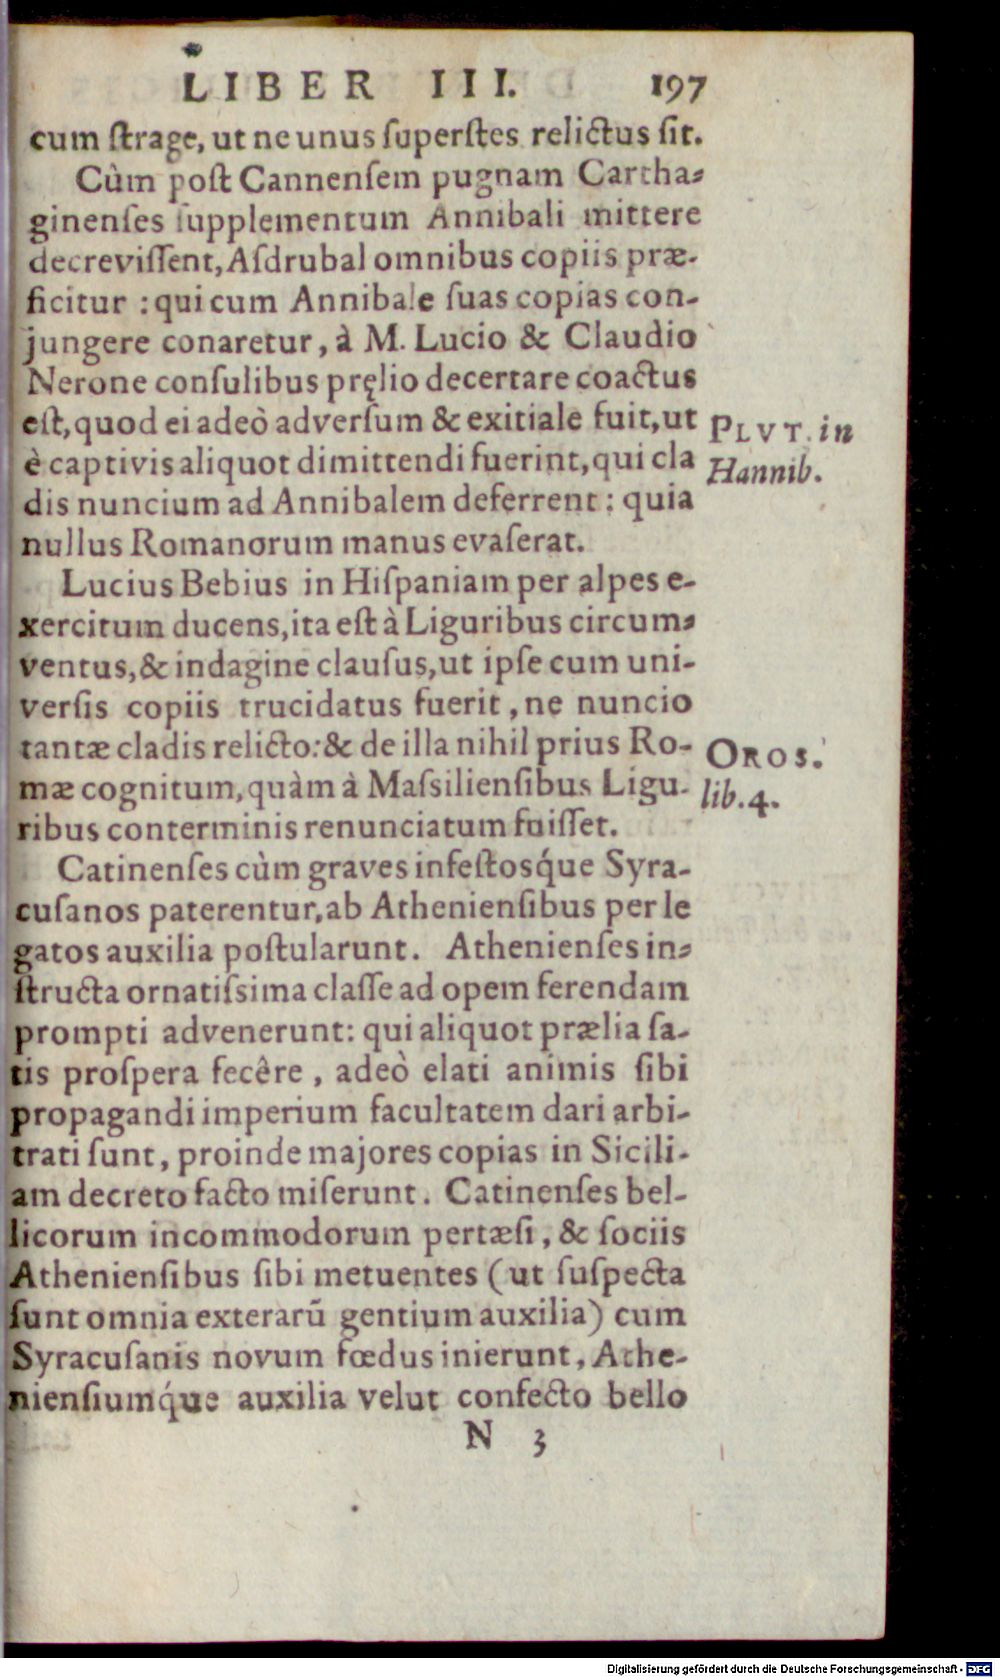 LIBER III. 197
cum ſtrage, ut ne unus ſuperſtes relictus ſit.
Cùm poſt Cannenſem pugnam Cartha-
ginenſes ſupplementum Annibali mittere
decreviſſent, Aſdrubal omnibus copiis præ-
ficitur : qui cum Annibale ſuas copias con-
jungere conaretur, à M. Lucio & Claudio
Nerone conſulibus pręlio decertare coactus
eſt, quod ei adeò adverſum & exitiale fuit, ut
è captivis aliquot dimittendi fuerint, qui cla
dis nuncium ad Annibalem deferrent : quia
nullus Romanorum manus evaſerat.
PLVT. in
Hannib.
Lucius Bebius in Hiſpaniam per alpes e-
xercitum ducens, ita eſt à Liguribus circum-
ventus, & indagine clauſus, ut ipſe cum uni-
verſis copiis trucidatus fuerit, ne nuncio
tantæ cladis relicto: & de illa nihil prius Ro-
mæ cognitum, quàm à Maſsilienſibus Ligu-
ribus conterminis renunciatum fuiſſet.
OROS.
lib. 4.
Catinenſes cùm graves infeſtosq́ue Syra-
cuſanos paterentur, ab Athenienſibus per le
gatos auxilia poſtularunt. Athenienſes in-
ſtructa ornatiſsima claſſe ad opem ferendam
prompti advenerunt: qui aliquot prælia ſa-
tis proſpera fecêre, adeò elati animis ſibi
propagandi imperium facultatem dari arbi-
trati ſunt, proinde majores copias in Sicili-
am decreto facto miſerunt. Catinenſes bel-
licorum incommodorum pertæſi, & ſociis
Athenienſibus ſibi metuentes (ut ſuſpecta
ſunt omnia exterarũ gentium auxilia) cum
Syracuſanis novum fœdus inierunt, Athe-
nienſiumq́ue auxilia velut confecto bello
N 3
Digitalisierung gefördert durch die Deutsche Forschungsgemeinschaft - DFG